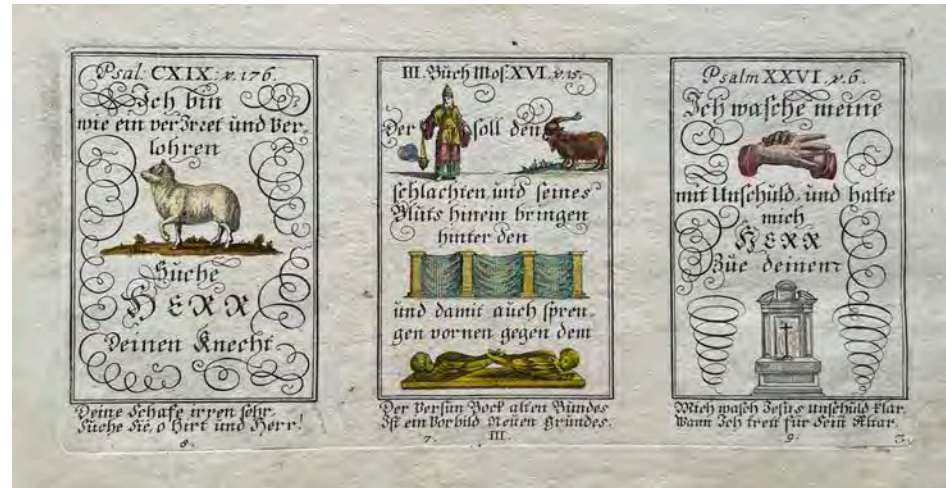 Psal: CXIX: v. 176.
Ich bin
wie ein verIrret und Ver-
lohren
Suche
HERR
Deinen Knecht
Deine Schafe irren sehr
Suche Sie, o Hirt und Herr!
8.
III. Buch Mos. XVI. v. 15.
Der soll den
schlachten, und seines
Bluts hinein bringen
hinter den
und damit auch spren-
gen vornen gegen dem
Der Versün Bock alten Bundes
Ist ein Vorbild Neuen Grundes.
7.
III.
Psalm XXVI. v. 6.
Ich wasche meine
mit Unschuld, und halte
mich
HERR
Zue deinem
Mich wasch Jesus unschuld klar,
Wann Ich trett für Sein Altar.
9.
3.